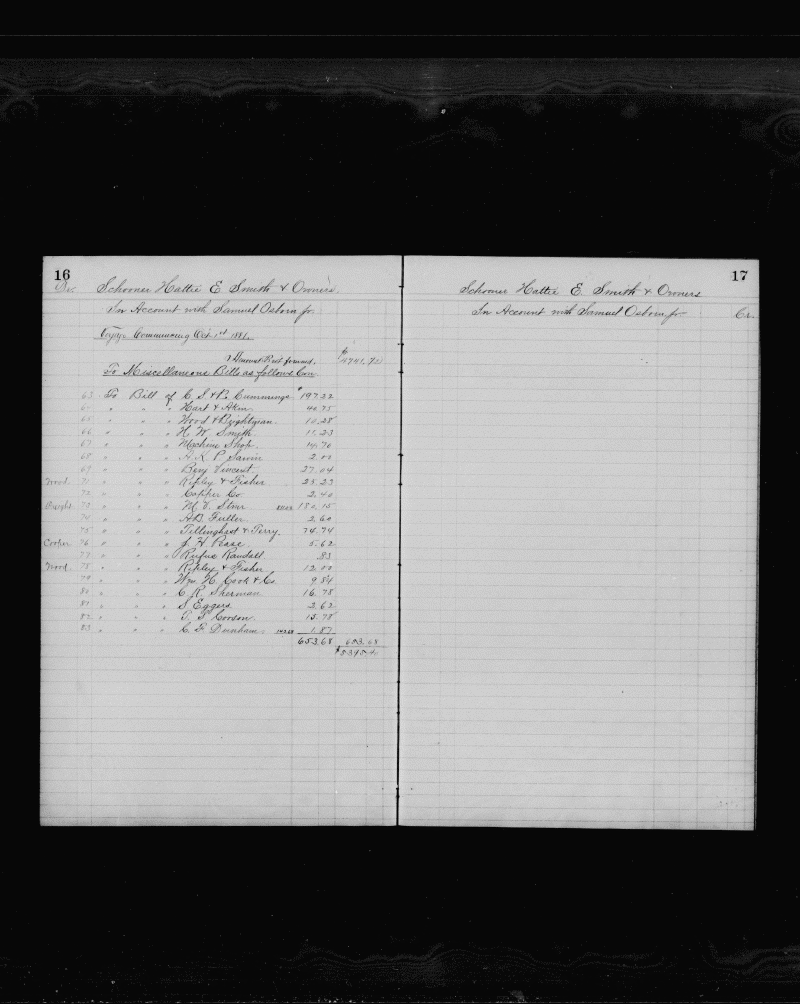 16
Dr. Schooner Hattie E Smith & Owners.
In Account with Samuel Osborn Jr.
Voyage Commencing Oct 1st 1881.
Amount Brot forward, $4741.70
To Miscellaneous Bills as follows
63 To Bill of C. S. & B. Cummings $197.22
64 " " " Hart & Akin 40.75
65 " " " Wood & Brightman 10.28
66 " " " H. W. Smith 15.23
67 " " " Machine Shop 14.70
68 " " " A. K. P. Sawin 2.00
69 " " " Benj Vincent 27.04
Wood. 71 " " " Ripley & Fisher 25.23
72 " " " Copper Co 2.40
73 " " " M. V. 150.15
74 " " " A.B. Fuller 2.60
75 " " " Tillinghast & Terry. 74.74
Cooper 76 " " " J. H. Pease 5.62
77 " " " Rufus Randall .83
Wood. 78 " " " Ripley & Fisher 12.00
79 " " " Wm. H. Cook & Co 9.84
80 " " " C. R. Sherman 16.78
81 " " " S Eggers 2.62
82 " " " 15.78
83 " " " C. F. Dunham 1.87
653.68 653.68
17
Schooner Hattie E. Smith & Owners
In Account with Samuel Osborn Jr Cr.